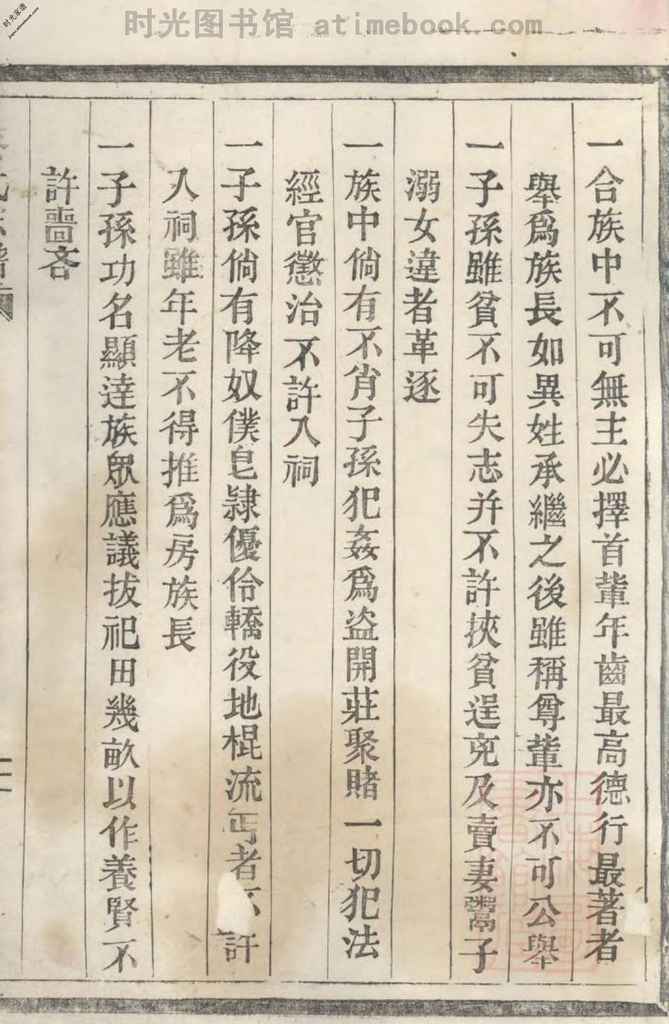 时光图书馆 atimebook.com
时光家谱
www.atimebook.com
一合族中不可無主必擇首輩年齒最高德行最著者
舉爲族長如異姓承繼之後雖稱尊輩亦不可公舉
一子孫雖貧不可失志并不許挾貧逞兇及賣妻鬻子
溺女違者革逐
一族中倘有不肖子孫犯姦爲盜開莊聚賭一切犯法
經官懲治不許入祠
一子孫倘有降奴僕皂隸優伶轎役地棍流丐者不許
入祠雖年老不得推爲房族長
一子孫功名顯達族眾應議拔祀田幾畝以作養賢不
許嗇吝